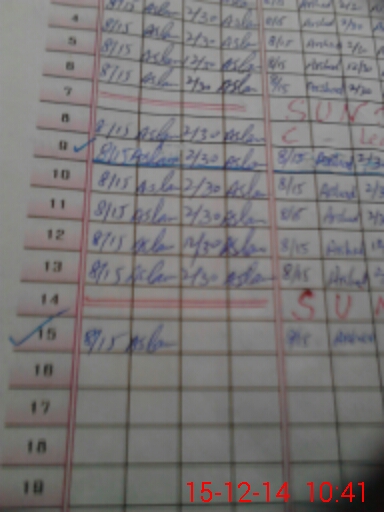 4 8/15 Aslam 2/30 Aslam 8/15 Arshad 2/30
5 8/15 Aslam 2/30 Aslam 8/15 Arshad
6 8/15 Aslam 2/30 Aslam 8/15 Arshad 2/30
7 S U N
8 8/15 Aslam 2/30 Aslam C - Le
9 8/15 Aslam 2/30 Aslam 8/15 Arshad
10 8/15 Aslam 2/30 Aslam 8/15 Arshad
11 8/15 Aslam 2/30 Aslam 8/15 Arshad
12 8/15 Aslam 12/30 Aslam 8/15 Arshad
13 8/15 Aslam 2/30 Aslam 8/15 Arshad
14 S U N
15 8/15 Aslam 8/15 Arshad
16
17
18
19
15-12-14 10:41